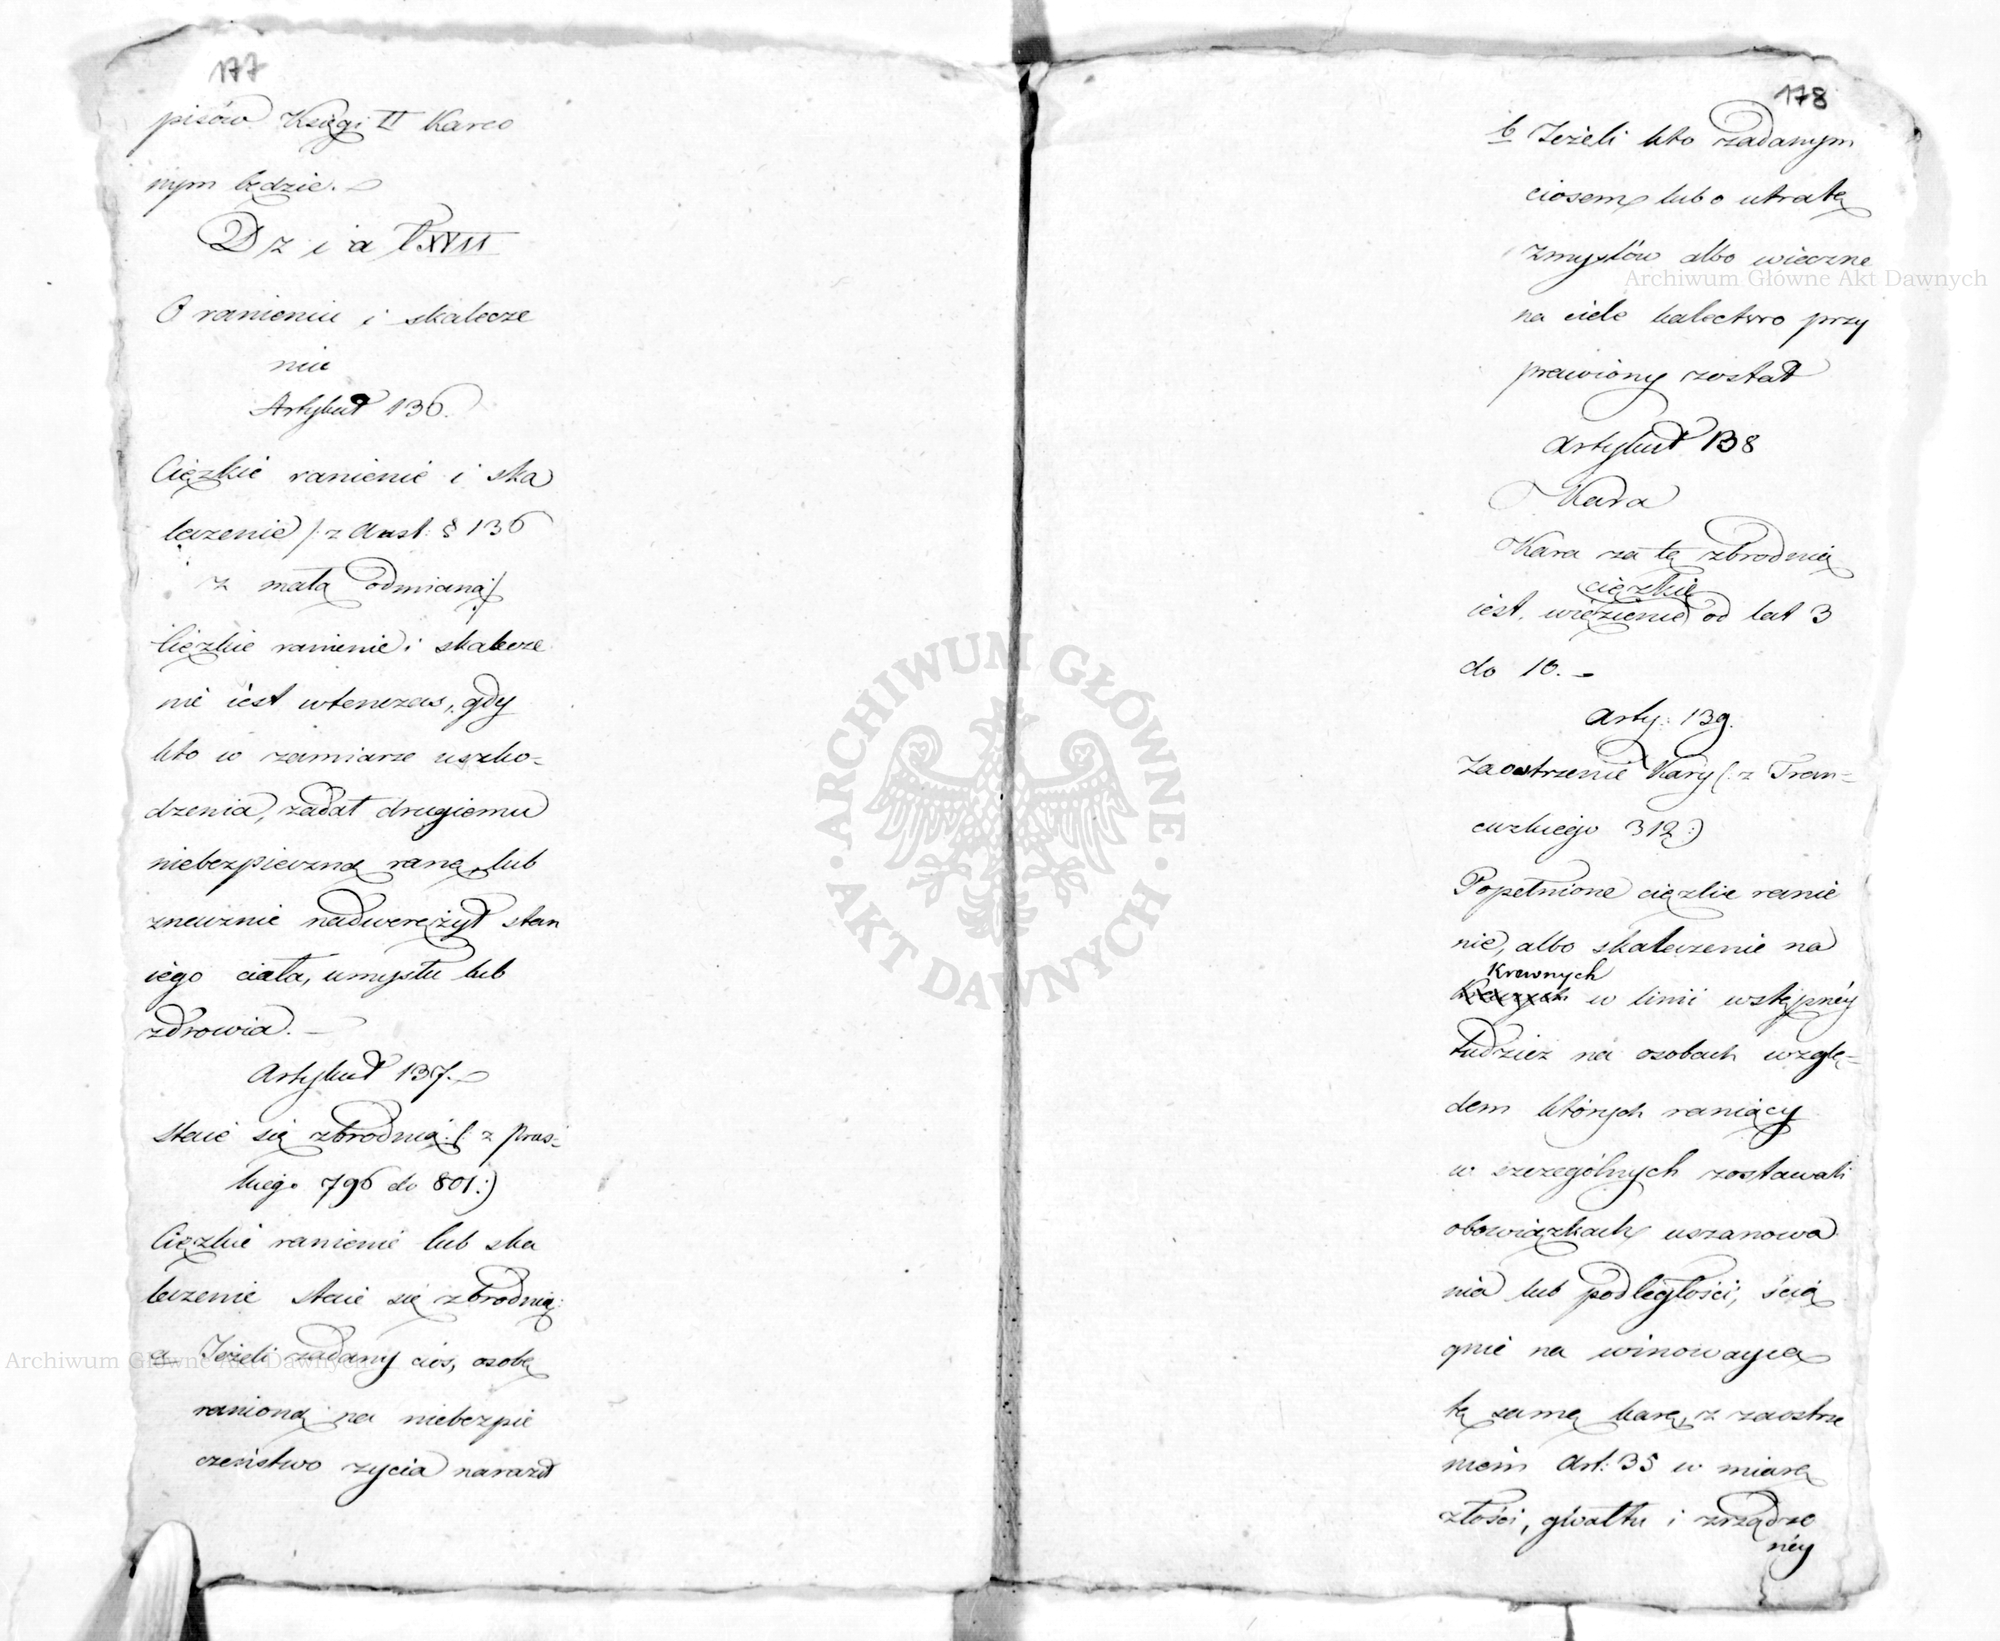 177
pisów Księgi II Karco
nym będzie. –
Dział XVII
O ranieniu i skalecze
niu
Artykuł 136.
Ciężkie ranienie i ska
leczenie /: z Aust: § 136
z małą odmianą :/
Ciężkie ranienie i skalecze
nie iest wtenczas, gdy
kto w zamiarze uszko-
dzenia, zadał drugiemu
niebezpieczną ranę, lub
znacznie nadwerężył stan
iego ciała, umysłu lub
zdrowia. –
Artykuł 137. –
staie się zbrodnią (: z Prus-
kiego 796 do 801 :)
Ciężkie ranienie lub ska
leczenie staie się zbrodnią:
a Jeżeli zadany cios, osobę
ranioną na niebezpie
czeństwo życia naraził
178
b Jeżeli kto zadanym
ciosem lub o utratę
zmysłów albo wieczne
na ciele kalectwo przy
prawiony został
Artykuł 138
Kara
Kara za tę zbrodnię
ciężkie
iest więzienie od lat 3
do 10. –
Arty: 139.
Zaostrzenie Kary (: z Fran-
cuzkiego 312 :)
Popełnione ciężkie ranie
nie, albo skaleczenie na
Krewnych
w linii wstępnéy
tudzież na osobach wzglę-
dem których raniący
w szczególnych zostawali
obowiązkach uszanowa
nia lub podległości, ścią
gnie na winowaycę
tę samę karę, z zaostrze
niem Art: 35 w miarę
złości, gwałtu i zrządzo
néy
Archiwum Główne Akt Dawnych
ARCHIWUM GŁÓWNE · AKT DAWNYCH ·
Archiwum Główne Akt Dawnych